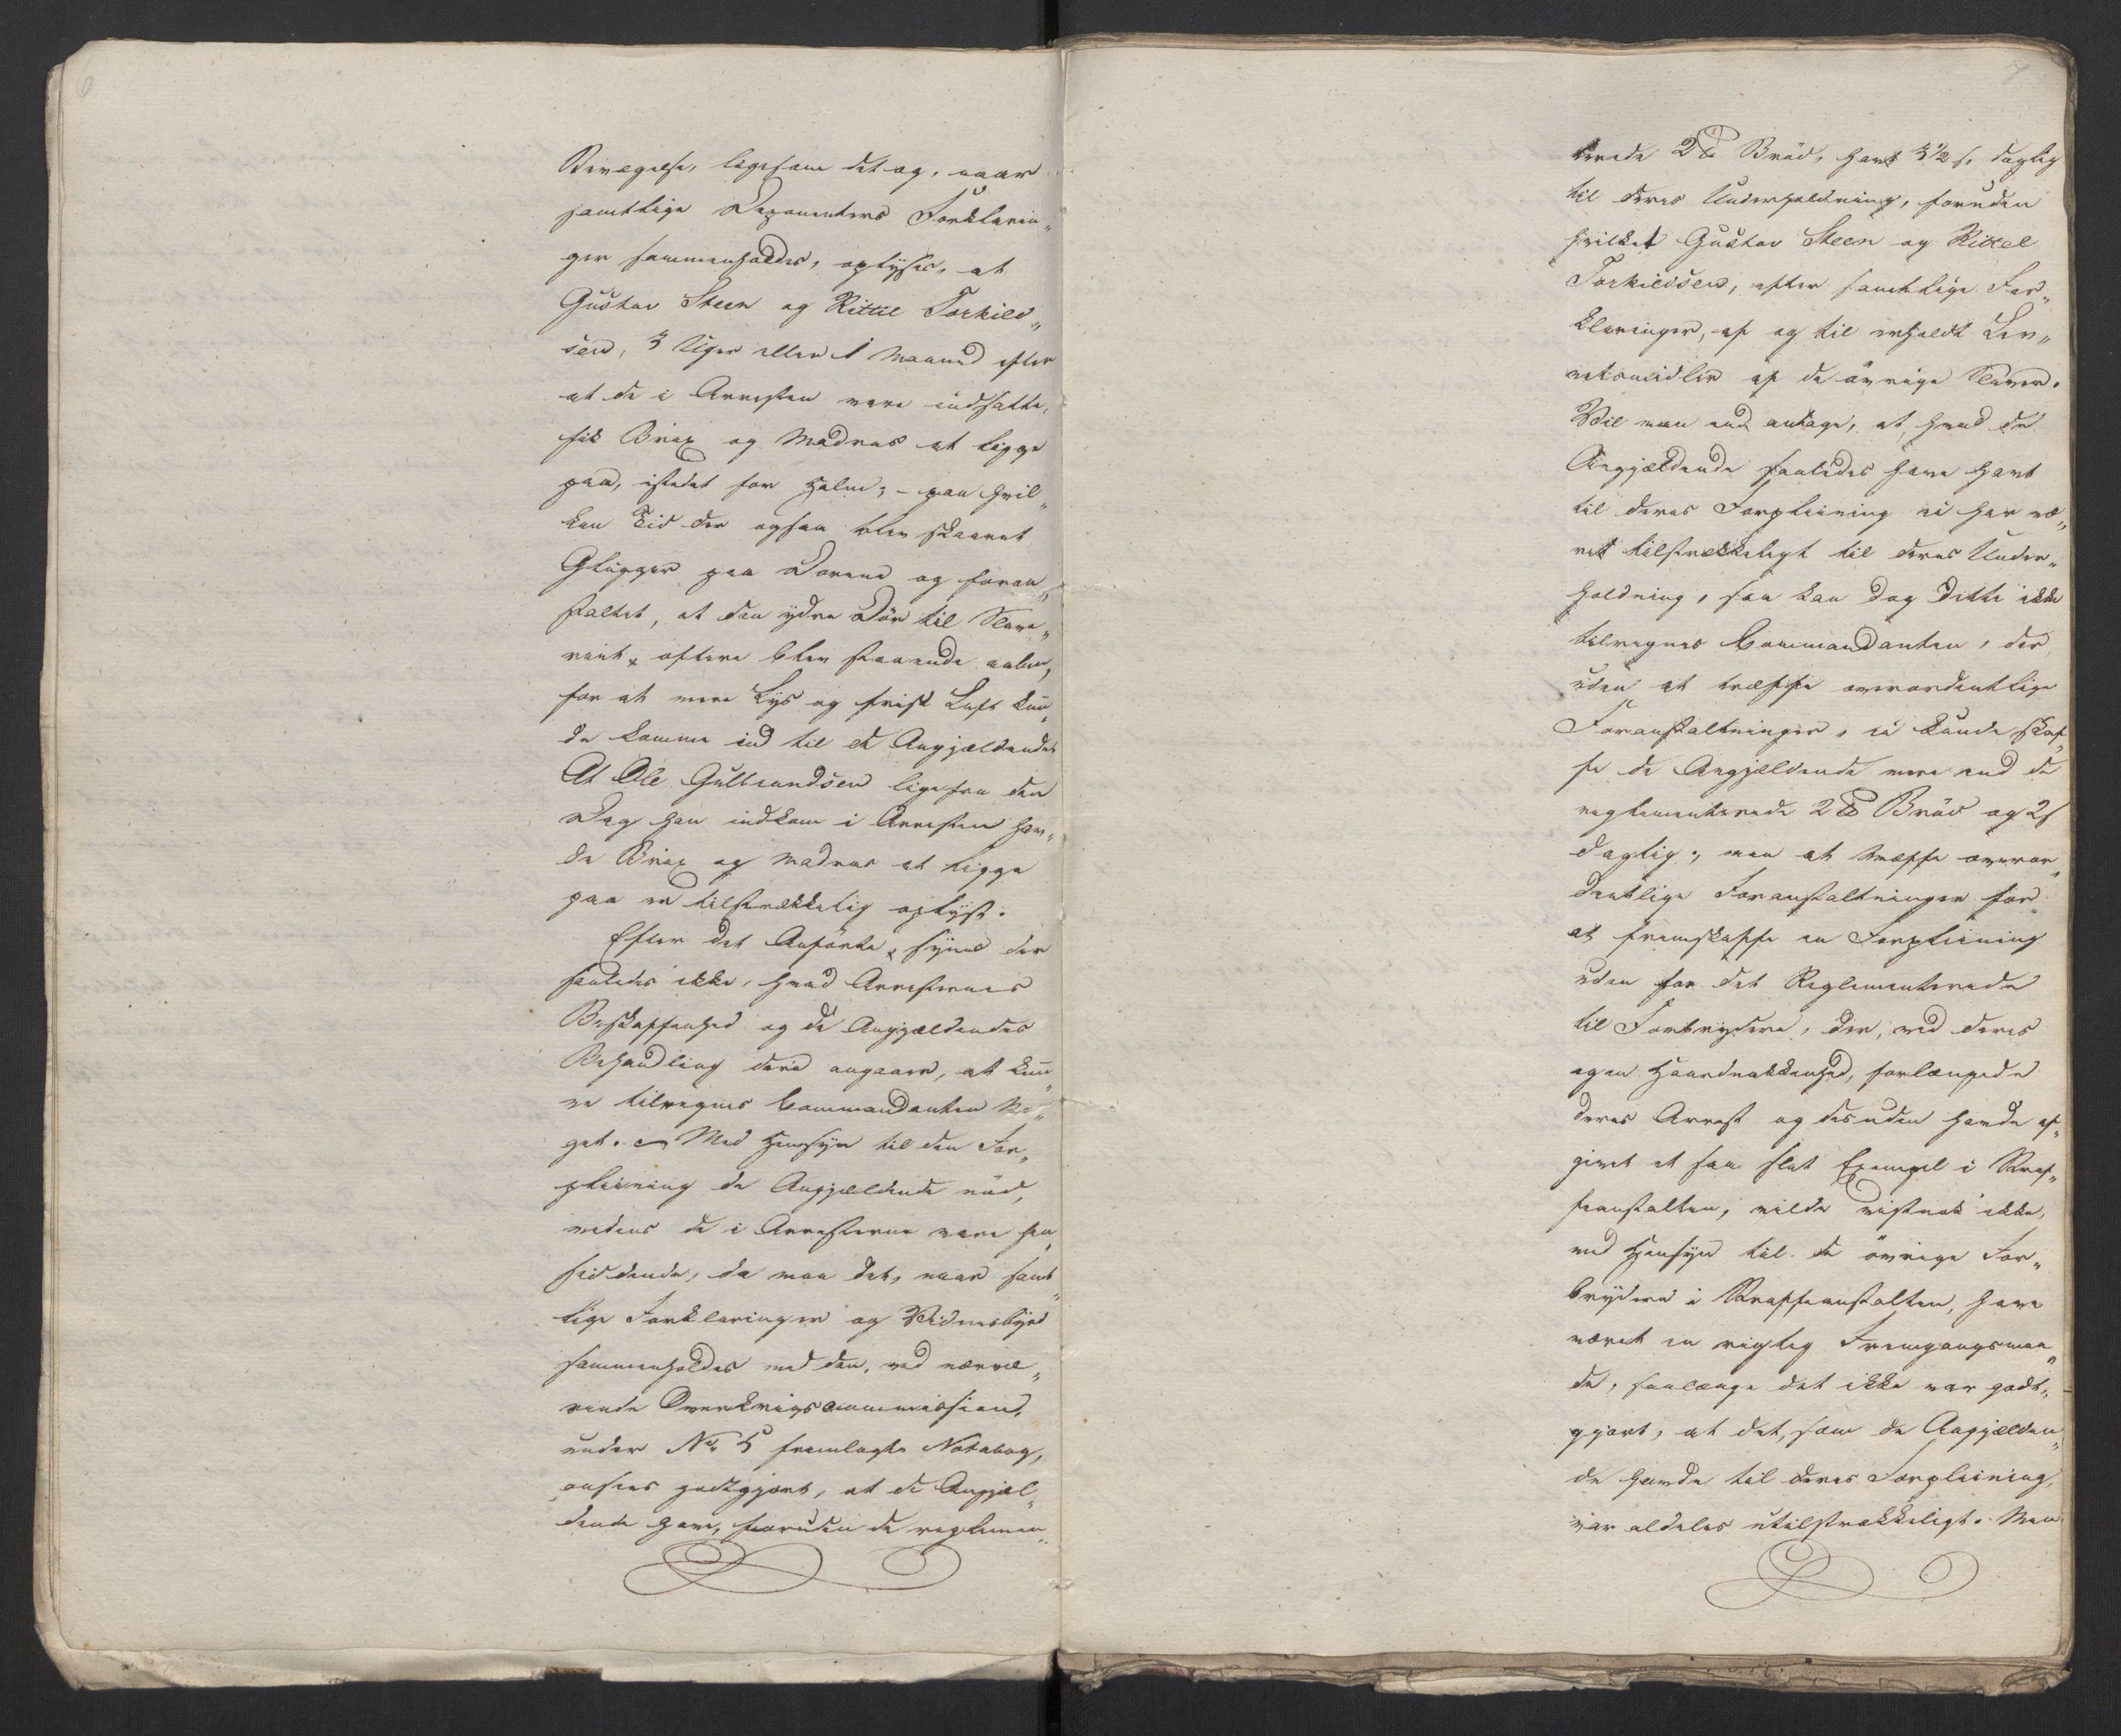 Bevægelse, ligesom det og, naar
samtlige Deponenters Forklarin„
ger sammenholdes, oplyses, at
Gustav Steen og Kittil Torkild„
sen, 3 Uger eller 1 Maaned efter
at de i Arresten vare indsatte,
fik Brix og Madras at ligge
paa, istedet for Halm; – paa hvil„
ken Tid der ogsaa blev skaaret
Glugger paa Dørene og foran„
staltet, at den ydre Dør til Slave„
riet oftere blev staaende aaben,
for at mere Lys og frisk Luft kun„
de komme ind til de Angjældende.
At Ole Gulbrandsen lige fra den
Dag han indkom i Arresten hav„
de Brix og Madras at ligge
paa er tilstrækkelig oplyst.
Efter det Anførte, synes der
saaledes ikke, hvad Arresternes
Beskaffenhed og de Angjældendes
Behandling deri angaaer, at kun„
ne tilregnes Commandanten No„
get. – Med Hensyn til den For„
pleining de Angjældende nød,
medens de i Arresterne vare hen„
siddende, da maa det, naar samt„
lige Forklaringer og Vidnesbyrd
sammenholdes med den, ved nærvæ„
rende Overkrigscommission,
under No 5 fremlagte Notabog,
ansees godtgjort, at de Angjæl„
dende have, foruden de reglemen„
terede 2 ℔ Brød, havt 3½ s. daglig
til deres Underholdning, foruden
hvilket Gustav Steen og Kittel
Torkildsen, efter samtlige For„
klaringer, af og til erholdt Lev„
netsmidler af de øvrige Slaver.
Vil man end antage, at hvad de
Angjældende saaledes have havt
til deres Forpleining ei har væ„
ret tilstrækkeligt til deres Under„
holdning, saa kan dog dette ikke
tilregnes Commandanten, der
uden at træffe overordentlige
Foranstaltninger, ei kunde skaf„
fe de Angjældende mere end de
reglementerede 2 ℔ Brød og 2 s
daglig; men at træffe overor„
dentlige Foranstaltninger for
at fremskaffe en Forpleining
uden for det Reglementerede
til Forbrydere, der, ved deres
egen Haardnakkenhed, forlængede
deres Arrest og desuden havde af„
givet et saa slet Exempel i Straf„
feanstalten, vilde vistnok ikke,
med Hensyn til de øvrige For„
brydere i Straffeanstalten, have
været en rigtig Fremgangsmaa„
de, saalænge det ikke var godt„
gjort, at det, som de Angjælden„
de havde til deres Forpleining,
var aldeles utilstrækkeligt. Men